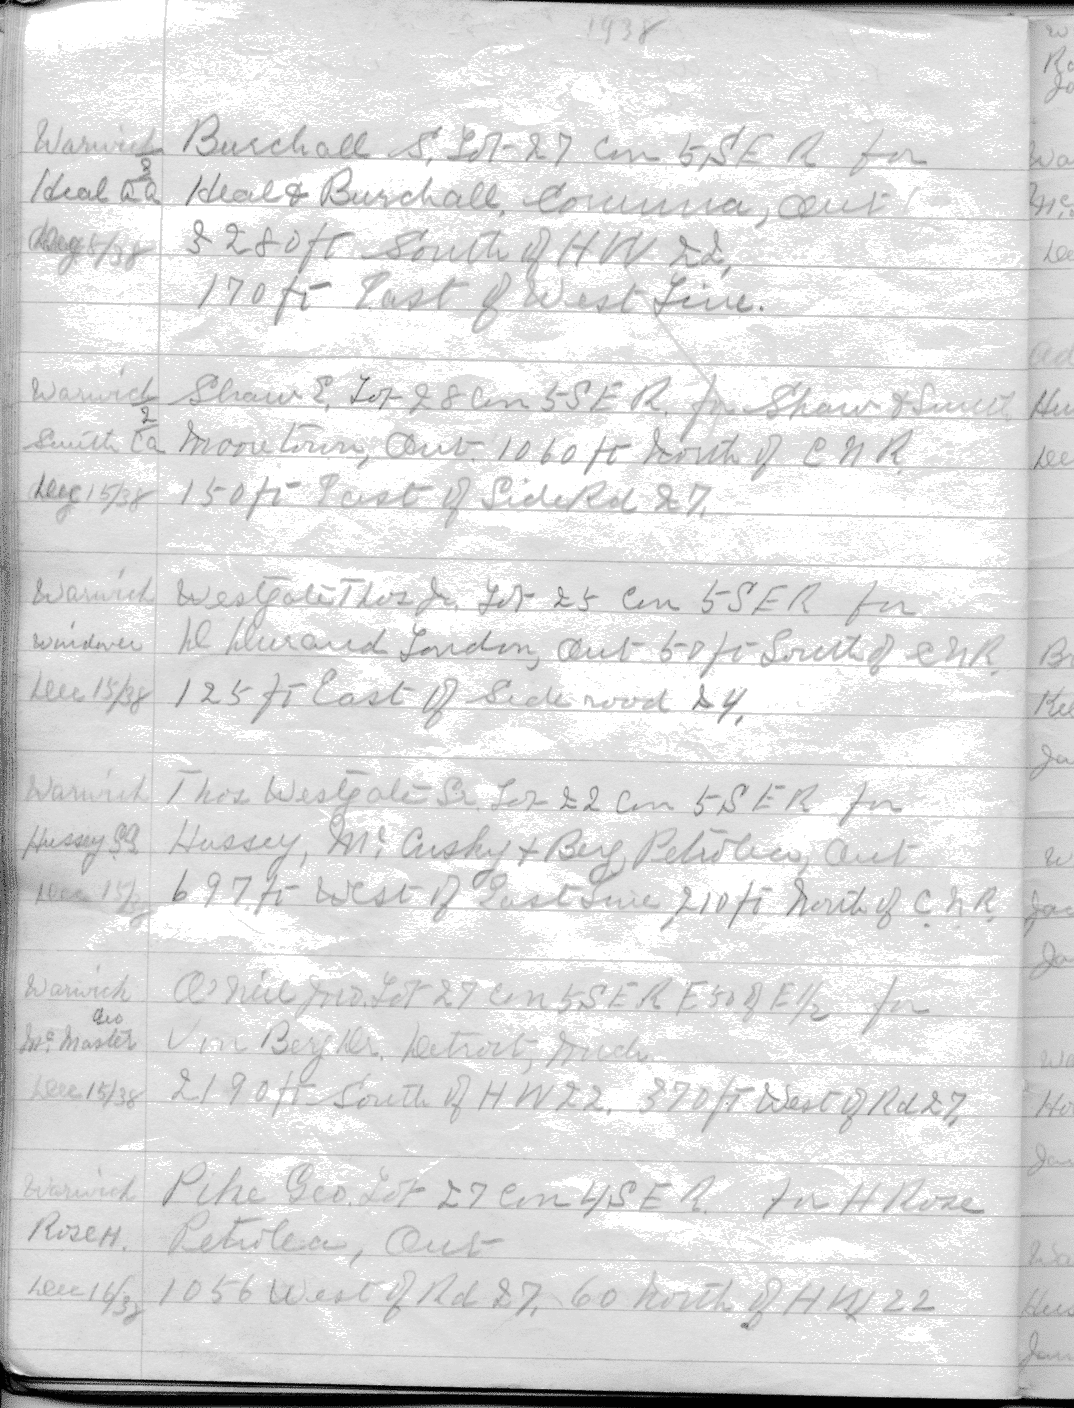 1938
Warwick Burchall S. Lot 27 Con 5 S E R for
2
Heal Heal & Burchall, Corunna, Ont
5/38 3280 ft South of HW 22,
170 ft East of West Line.
Warwick Shaw E. Lot 28 Con 5 S E R. for Shaw & Smith
2
Smith Ca Mooretown, Ont. 1060 ft North of C N R.
15/38 150 ft East of Side Rd 27.
Warwick Westgate Thos Jr. Lot 25 Con 5 S E R for
Windover D Durand London, Ont 50 ft South of C N R.
Dec 15/38 125 ft East of Side road 24.
Warwick Thos Westgate Sr. Lot 22 Con 5 S E R for
Hussey Hussey, Mc Cusky & Berg, Petrolea, Ont
Dec 15/38 697 ft West of East Line 210 ft North of C. N. R.
Warwick O'Neil Jno. Lot 27 Con 5 S E R E 50 of E 1/2 for
Geo
Mc Master Von Berg Dr. Detroit, Mich
Dec 15/38 2190 ft South of H W 22. 370 ft West of Rd 27,
Warwick Pike Geo. Lot 27 Con 4 S E R. for H Rose
Rose H. Petrolea, Ont
Dec 16/38 1056 West of Rd 27, 60 North of H W 22